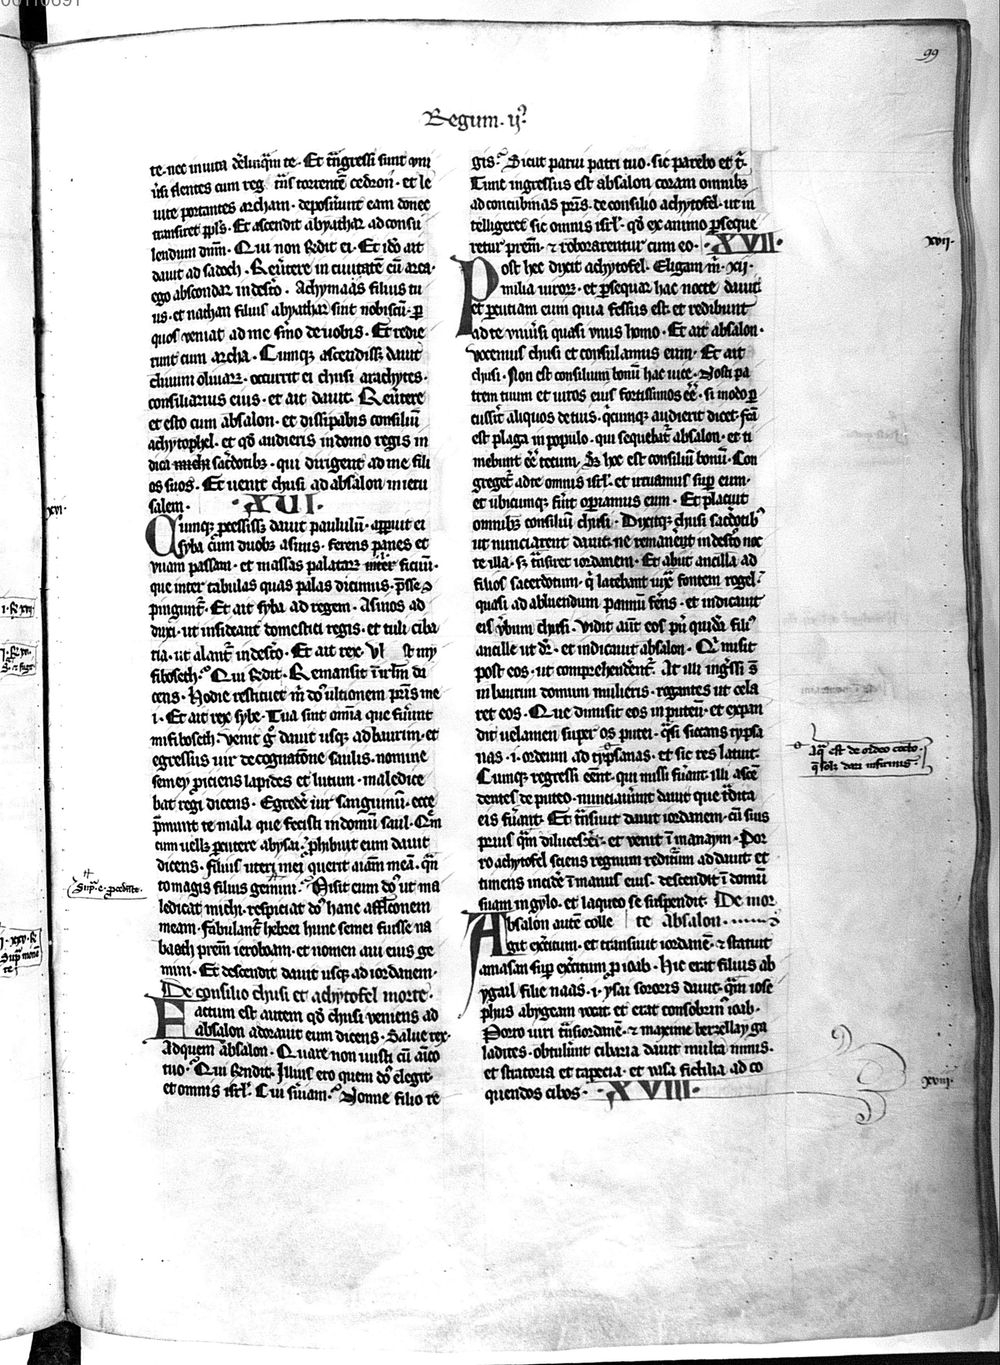 99
Regum · ij°
te · nec inuita delinquam te · Et transgressi sunt omnes
isti flentes cum rege trans torrentem cedron · et le
uite portantes archam · deposuerunt eam donec
transiret populus · Et ascendit abyathar ad consu
lendum dominum · Qui non respondit ei · Et ideo ait
dauid ad sadoch · Reuertere in ciuitatem cum arca ·
ego abscondar in deserto · Achymaas filius tu
us · et nathan filius abyathar sint nobiscum · per
quos ueniat ad me sermo de uobis · Et redie
runt cum archa · Cumque ascendisset dauid
cliuum oliuarum · occurrit ei chusi arachytes ·
consiliarius eius · et ait dauid · Reuertere
et esto cum absalon · et dissipabis consilium
achytophel · et quod audieris in domo regis in
dica michi sacerdotibus · qui dirigent ad me fili
os suos · Et uenit chusi ad absalon in ieru
salem · XVI ·
Cumque processisset dauid paululum · apparuit ei
syba cum duobus asinis · ferens panes et
unam passam · et massas palatarum ficuum ·
que inter tabulas quas palas dicimus · presse
pinguntur · Et ait syba ad regem · Asinos ad
duxi · ut insideant domestici regis · et tuli ciba
ria · ut alantur in deserto · Et ait rex · Vbi est my
fiboseth · Qui respondit · Remansit in ierusalem di
cens · Hodie restituet michi dominus ultionem patris me
i · Et ait rex sybe · Tua sint omnia que fuerunt
mifiboseth · venit ergo dauid usque ad baurim · et
egressus uir de cognatione saulis · nomine
semey proiciens lapides et lutum · maledice
bat regi dicens · Egredere uir sanguinum · ecce
premunt te mala que fecisti in domum saul · Quem
cum uellet percutere abysai · prohibuit eum dauid
dicens · filius uteri mei querit animam meam · quan
to magis filius gemini · Misit eum dominus ut ma
ledicat michi · respiciat dominus hanc afflictionem
meam · fabulantur hebrei hunc semei fuisse na
baath patrem ieroboam · et nomen aui eius ge
mini · Et descendit dauid usque ad iordanem ·
De consilio chusi et achytofel morte ·
Factum est autem quod chusi ueniens ad
absalon adorauit eum dicens · Salue rex ·
Ad quem absalon · Quare non iuisti cum amico
tuo · Qui respondit · Illius ero quem dominus elegit ·
et omnis israel · Cui seruiam · Nonne filio re
gis · Sicut parui patri tuo · sic parebo et tibi ·
Tunc ingressus est absalon coram omnibus
ad concubinas patris · de consilio achytofel · ut in
telligeret sic omnis israel · quod ex animo perseque
retur patrem · et roborarentur cum eo · XVII ·
Post hec dixit achytofel · Eligam michi · xii ·
milia uirorum · et persequar hac nocte dauid
et percutiam eum quia fessus est · et redibunt
ad te uniuersi quasi unus homo · Et ait absalon ·
vocemus chusi et consulamus eum · Et ait
chusi · Non est consilium bonum hac uice · Nosti pa
trem tuum et uiros eius fortissimos esse · si modo per
cussit aliquos de tuis · quicumque audierit dicet · facta
est plaga in populo · qui sequebatur absalon · et ti
mebunt esse tecum · Sed hoc est consilium bonum · Con
gregetur ad te omnis israel · et irruamus super eum ·
et ubicumque fuerit operiamus eum · Et placuit
omnibus consilium chusi · Dixitque chusi sacerdotibus
ut nunciarent dauid · ne remaneret in deserto noc
te illa · sed transiret iordanem · Et abiit ancilla ad
filios sacerdotum · qui latebant iuxta fontem rogel ·
quasi ad abluendum pannum ferens · et indicauit
eis uerbum chusi · Vidit autem eos puer quidam filius
ancille ut dicitur · et indicauit absalon · Qui misit
post eos · ut comprehenderentur · At illi ingressi sunt
in baurim domum mulieris · rogantes ut cela
ret eos · Que dimisit eos in puteum · et expan
dit uelamen super os putei · quasi siccans typsa
nas · i · ordeum ad typsanas · et sic res latuit ·
Cumque regressi essent · qui missi fuerant · illi ascen
dentes de puteo · nunciauerunt dauid que tradita
eis fuerant · Et transiuit dauid iordanem · cum suis
prius quam dilucesceret · et uenit in manaym · Por
ro achytofel sciens regnum rediturum ad dauid et
timens incidere in manus eius · descendit in domum
suam in gylo · et laqueo se suspendit · De mor
Absalon autem colle te absalon ·
git exercitum · et transiuit iordanem · et statuit
amasan super exercitum pro ioab · Hic erat filius ab
ygail filie naas · i · ysai sororis dauid · quam iose
phus abygeam uocat et erat consobrinus ioab ·
Porro uiri trans iordanem · et maxime berzellay ga
ladites · obtulerunt cibaria dauid multa nimis ·
et stratoria et tapecia · et uasa fictilia ad co
quendos cibos · XVIII ·
xvi ·
xvii ·
aqua est de ordeo cocto ·
que solet dari infirmis
xviii ·